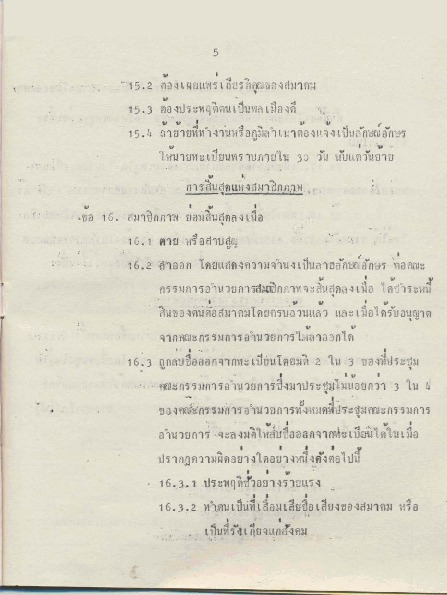 5
15.2 ต้องเผยแพร่เกียรติคุณของสมาคม
15.3 ต้องประพฤติตนเป็นพลเมืองดี
15.4 ถ้าย้ายที่ทำงานหรือภูมิลำเนาต้องแจ้งเป็นลายลักษณ์อักษร
ให้นายทะเบียนทราบภายใน 30 วัน นับแต่วันย้าย
การสิ้นสุดแห่งสมาชิกภาพ
ข้อ 16. สมาชิกภาพ ย่อมสิ้นสุดลงเมื่อ
16.1 ตาย หรือสาบสูญ
16.2 ลาออก โดยแสดงความจำนงเป็นลายลักษณ์อักษร ต่อคณะ
กรรมการอำนวยการสมาชิกภาพจะสิ้นสุดลงเมื่อ ได้ชำระหนี้
สินของตนต่อสมาคมโดยครบถ้วนแล้ว และเมื่อได้รับอนุญาต
จากคณะกรรมการอำนวยการให้ลาออกได้
16.3 ถูกลบชื่อออกจากทะเบียนโดยมติ 2 ใน 3 ของที่ประชุม
คณะกรรมการอำนวยการซึ่งมาประชุมไม่น้อยกว่า 3 ใน 4
ของคณะกรรมการอำนวยการทั้งหมดที่ประชุมคณะกรรมการ
อำนวยการ จะลงมติให้ลบชื่อออกจากทะเบียนได้ในเมื่อ
ปรากฏความผิดอย่างใดอย่างหนึ่งดังต่อไปนี้
16.3.1 ประพฤติชั่วอย่างร้ายแรง
16.3.2 ทำตนเป็นที่เสื่อมเสียชื่อเสียงของสมาคม หรือ
เป็นที่รังเกียจแก่สังคม